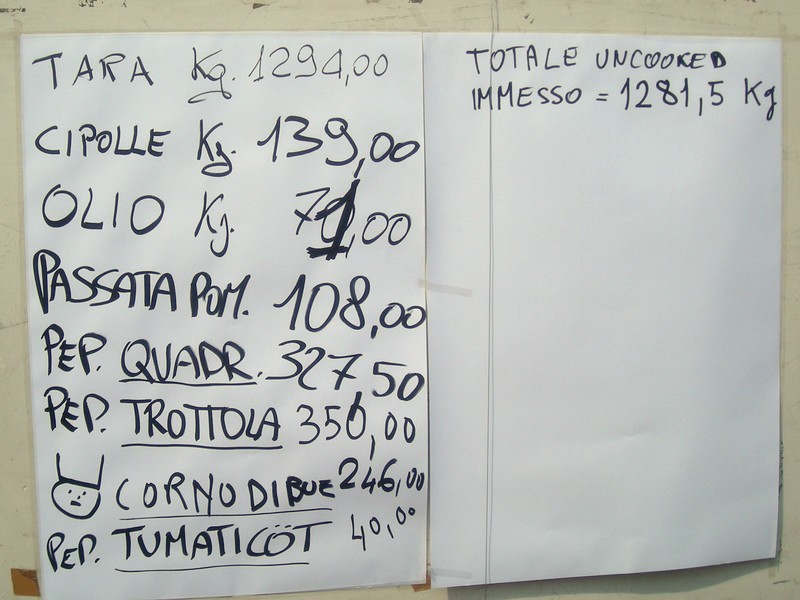 TARA Kg. 1294,00
CIPOLLE Kg. 139,00
OLIO Kg. 71,00
PASSATA POM. 108,00
PEP. QUADR. 327,50
PEP. TROTTOLA 350,00
CORNO DI BUE 246,00
PEP. TUMATICÖT 40,00
TOTALE UNCOOKED
IMMESSO = 1281,5 Kg